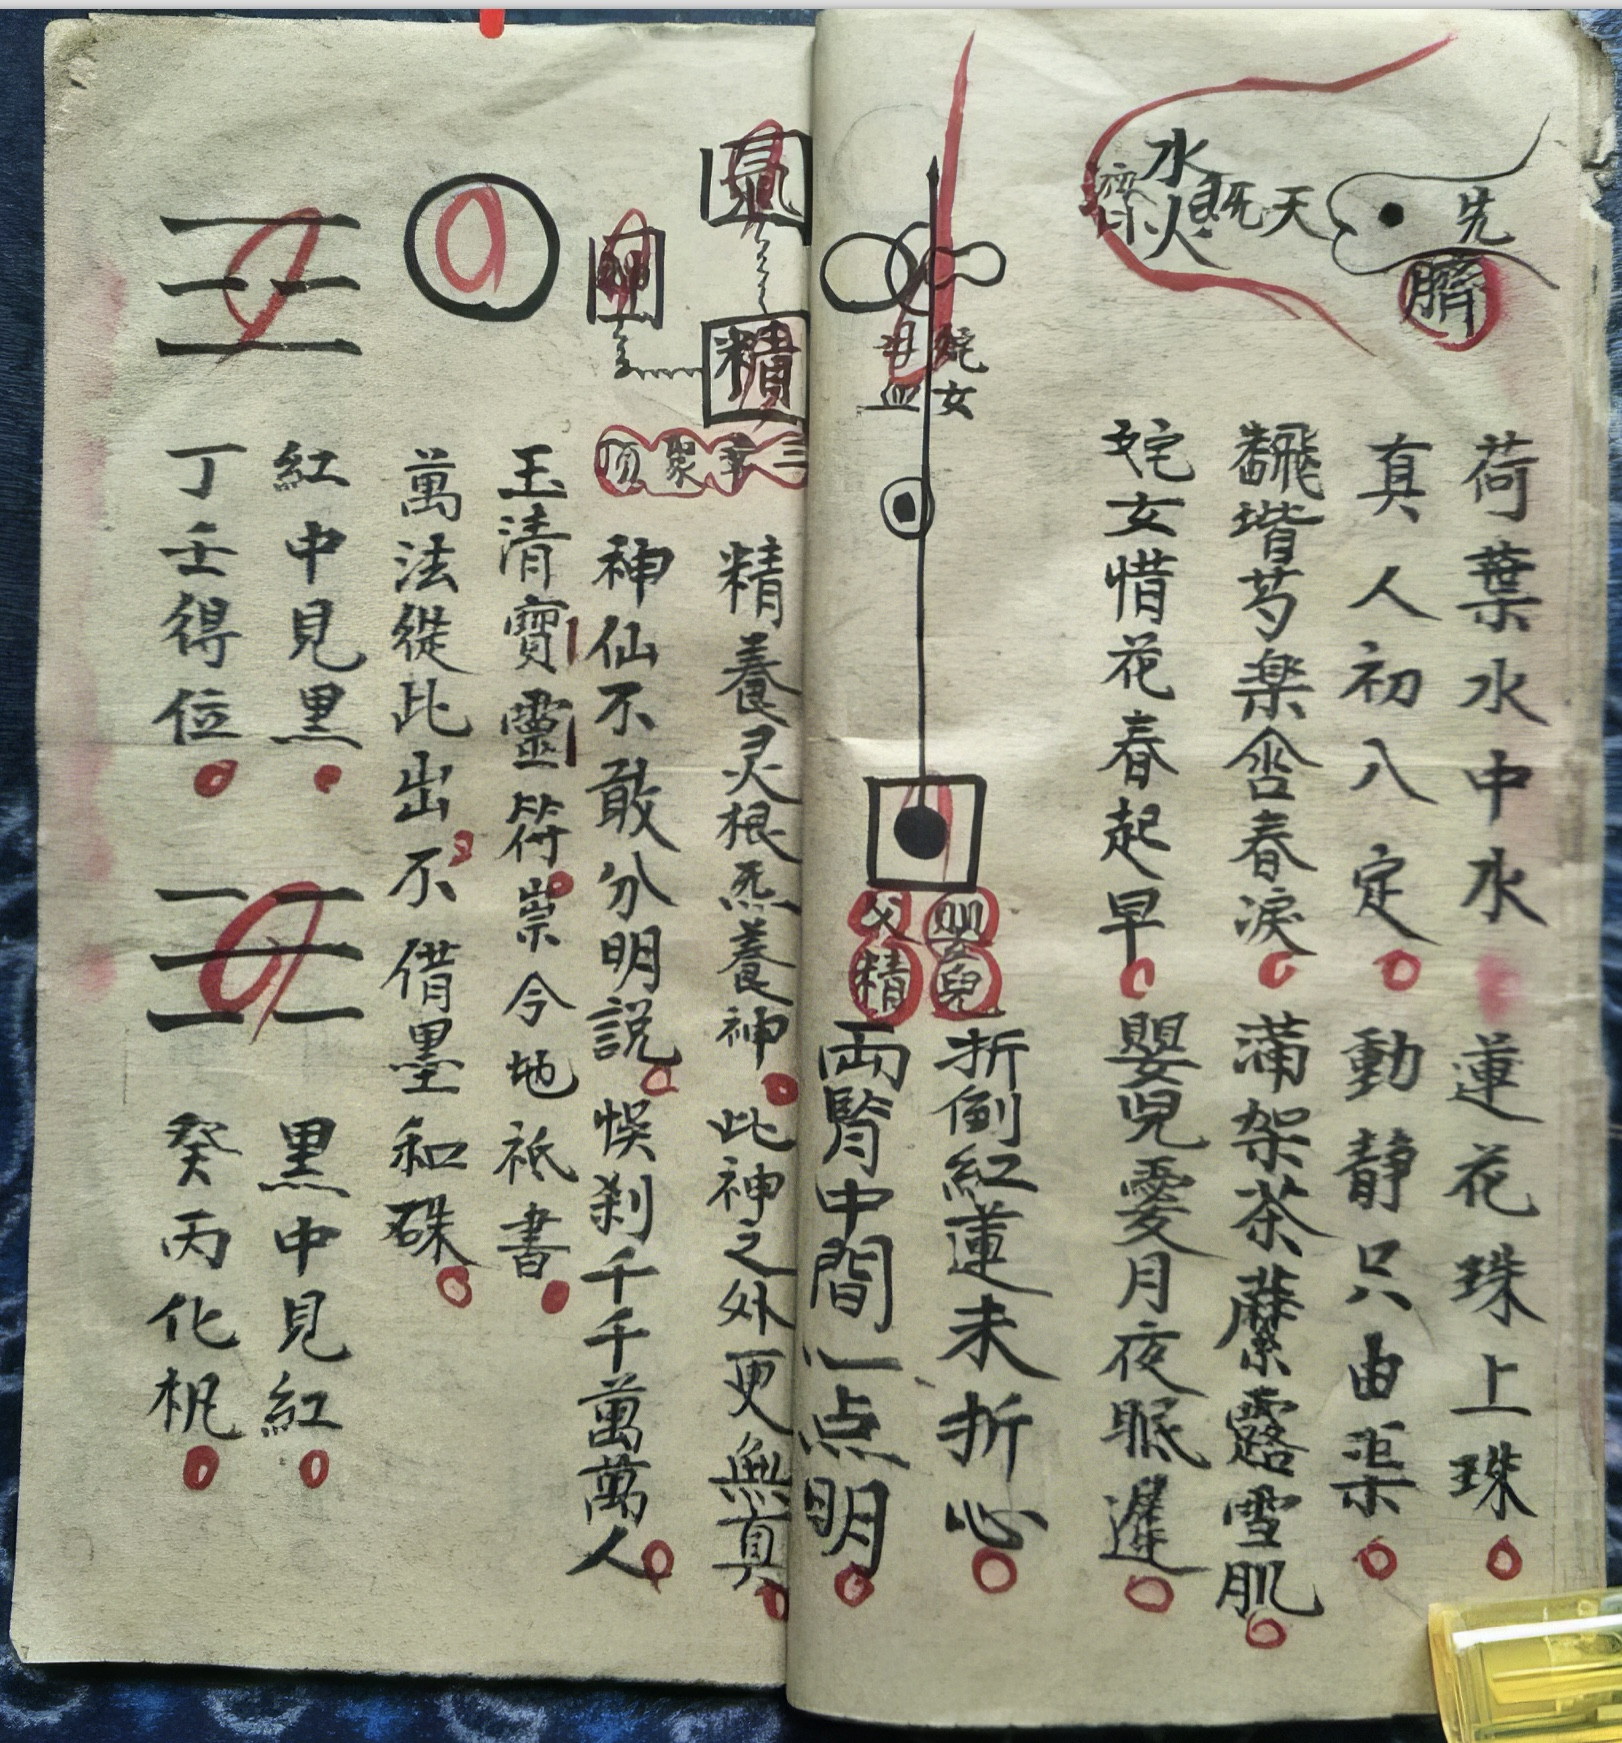 先天
臍
水火既濟
荷葉水中水 蓮花珠上珠
真人初入定 動静只由渠
飜堦芍薬含春淚 滿架茶蘼露雪肌
姹女惜花春起早 嬰兒愛月夜眠遲
姹女
母血
嬰兒
父精
折倒紅蓮未折心
両腎中間一点明
氣
精
神
三華聚頂
精養灵根炁養神 此神之外更無真
神仙不敢分明説 悮刹千千萬萬人
玉清寶靈符 崇今地祇書
萬法從此出 不借墨和硃
紅中見黑 黑中見紅
丁壬得位 癸丙化机